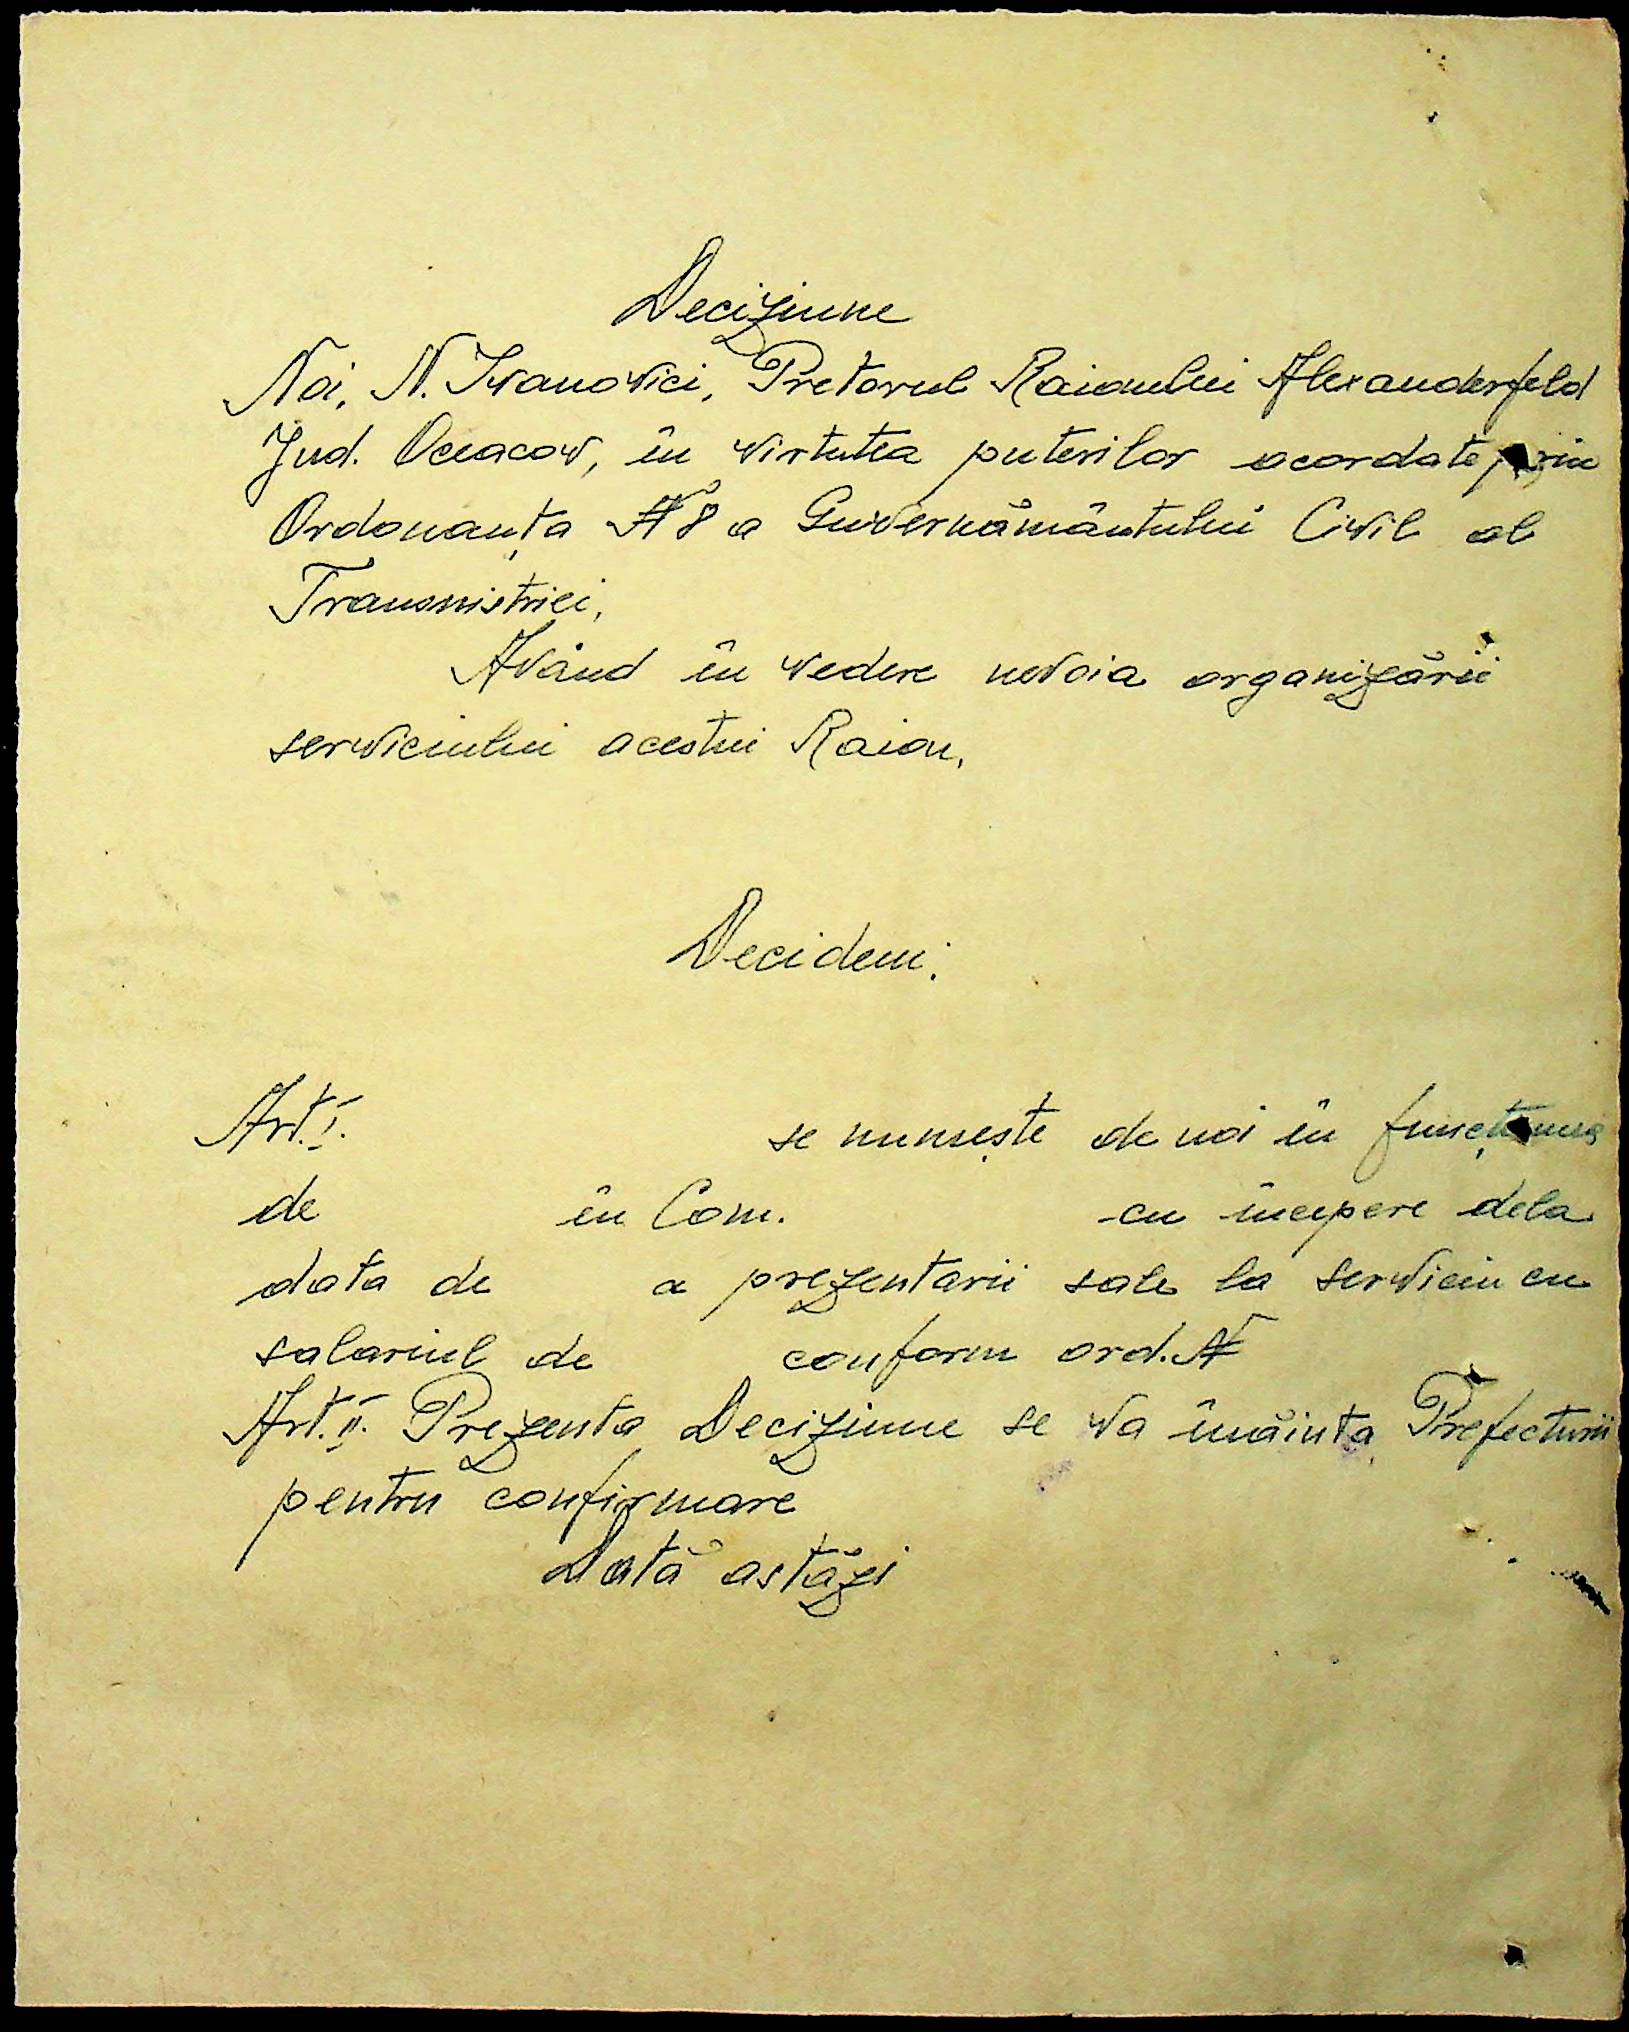 Deciziune
Noi, N. Ivanovici, Pretorul Raionului Alexanderfeld
Jud. Oceacov, în virtutea puterilor acordate prin
Ordonanța № 8 a Guvernământului Civil al
Transnistriei,
Având în vedere nevoia organizării
serviciului acestui Raion,
Decidem:
Art. I. se numește de noi în funcțiunea
de în Com. cu începere dela
data de a prezentarii sale la serviciu cu
salariul de conform ord. №
Art. II. Prezenta Deciziune se va înăinta Prefecturii
pentru confirmare
Dată astăzi